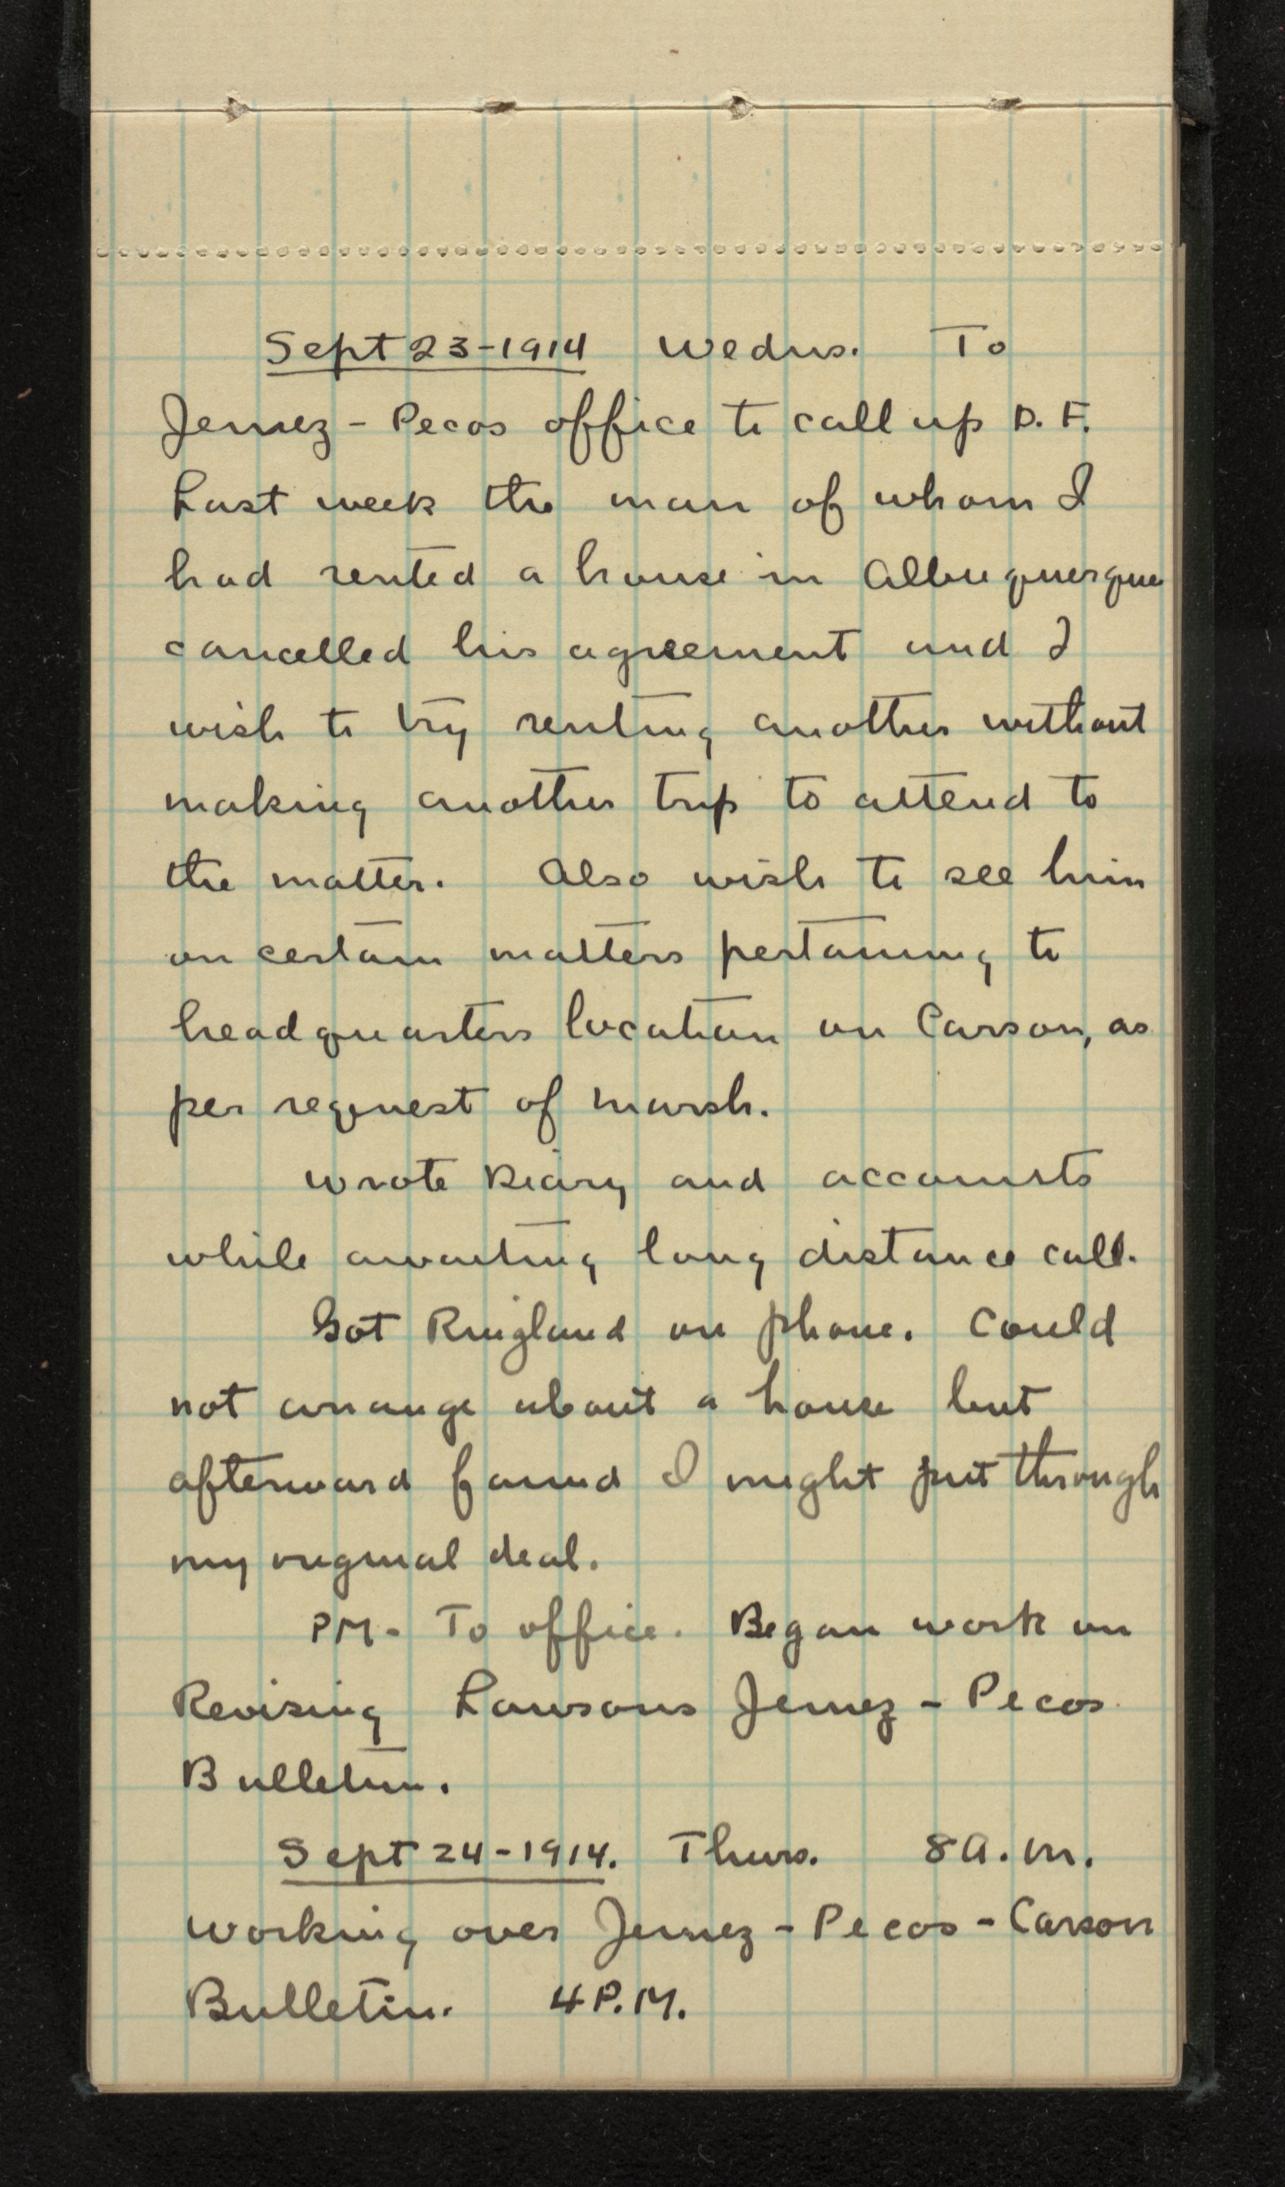 Sept 23-1914 Wednes. To
Jemez-Pecos office to call up D.F.
Last week the man of whom I
had rented a house in Albuquerque
cancelled his agreement and I
wish to try renting another without
making another trip to attend to
the matter. Also wish to see him
on certain matters pertaining to
headquarters location on Carson, as
per request of Marsh.
Wrote Diary and accounts
while awaiting long distance call.
Got Ringland on phone. Could
not arrange about a house but
afterward found I might put through
my original deal.
PM- To office. Began work on
Revising Lawsons Jemez-Pecos
Bulletin.
Sept 24-1914. Thurs. 8 A.M.
Working over Jemez-Pecos-Carson
Bulletin. 4 P.M.